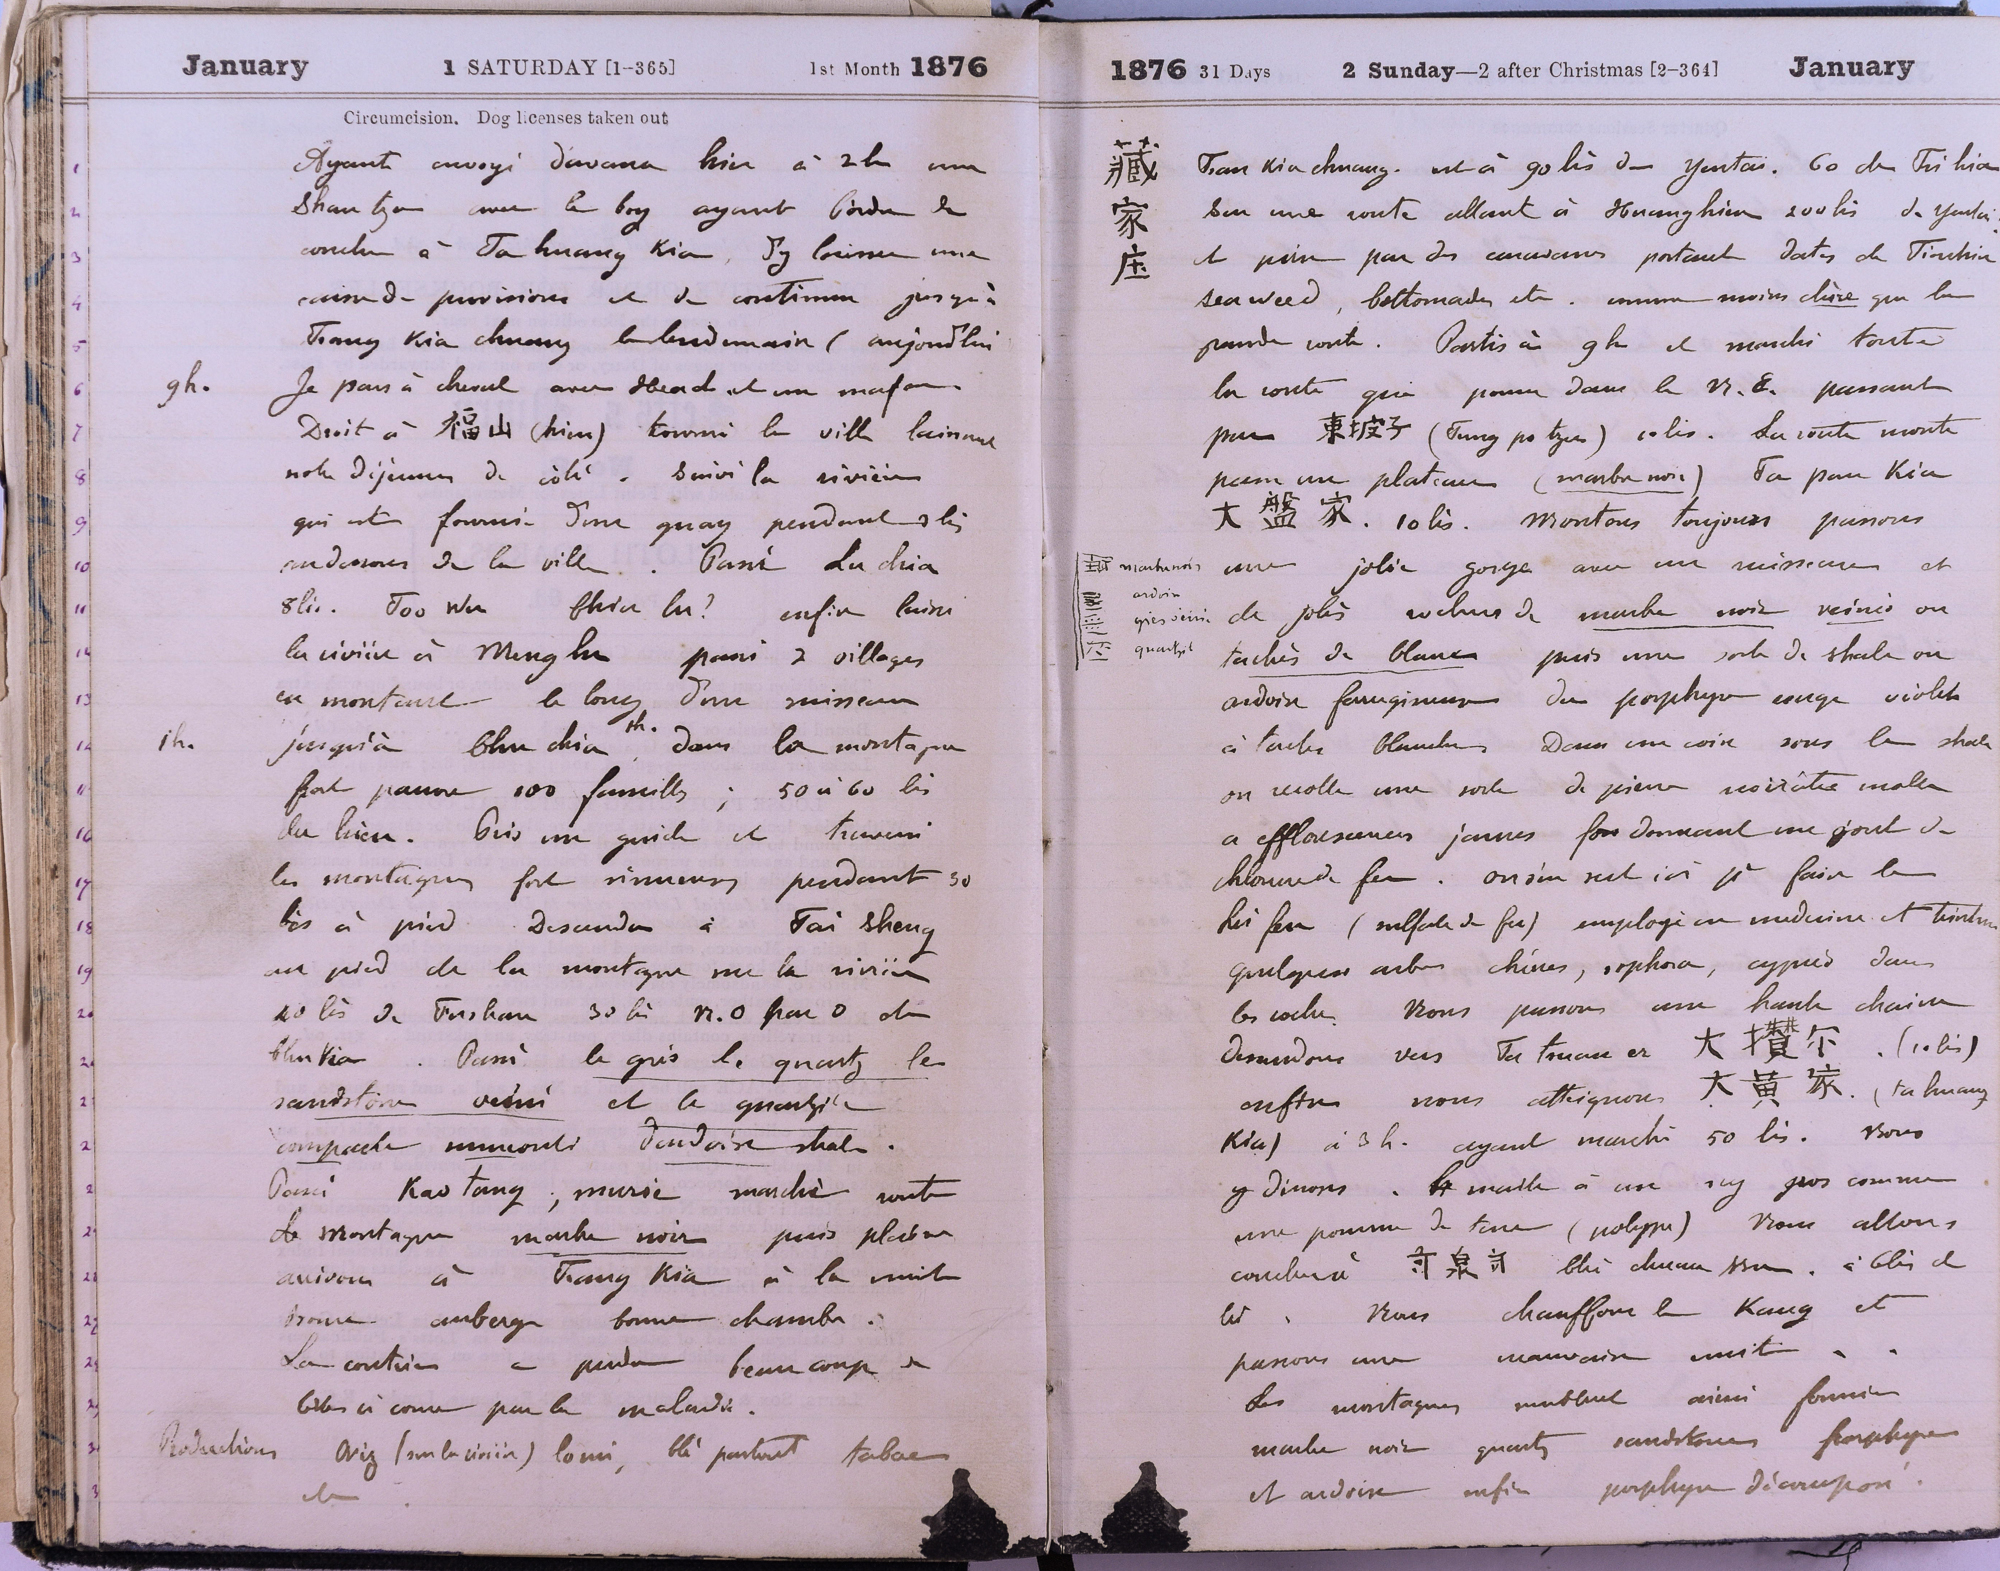 January 1 SATURDAY [1-365] 1st Month 1876
Circumcision. Dog licenses taken out
Ayant envoyé d'avance hier à 2h une
Shantze avec le boy ayant l'ordre de
coucher à Ta huang Kia, d'y laisser une
caisse de provisions et de continuer jusqu'à
Tsang Kia chuang le lendemain (aujourd'hui
9h. Je pars à cheval avec Head et un mafou.
Droit à 福山 (hien) tourné la ville laissant
notre déjeuner de côté. Suivi la rivière
qui est fournie d'un quay pendant 3 lis
au dessous de la ville. Passé Lu chia
8 lis. Too wu Chia lu? enfin laissé
la rivière à Meng lu passé 2 villages
en montant le long d'un ruisseau
1h. jusqu'à Chu chia 1h. dans la montagne
fort pauvre 100 familles; 50 à 60 lis
du hien. Pris un guide et traversé
les montagnes fort sinueuses pendant 30
lis à pied Descendu à Tai Sheng
au pied de la montagne sur la rivière
40 lis de Fushan 30 lis N.O par O de
Chu Kia. Passé le grès le quartz le
sandstone veiné et le quartzite
compacte surmonté d'ardoise shale.
Passé Kao tang, marché route
de montagne marbre noir puis plaine
arrivons à Tsang Kia à la nuit
bonne auberge bonne chambre.
La contrée a perdu beaucoup de
bêtes à corne par la maladie.
Productions Riz (sur la rivière) blé partout tabac
etc.
1876 31 Days 2 Sunday—2 after Christmas [2-364] January
藏家庄
Tsan Kia chuang. est à 90 lis de Yentai. 60 de Fu hien
sur une route allant à Huanghien 200 lis de Yentai
et prise par des caravanes portant dates de Tientsin
seaweed, etc. comme moins chère que la
grande route. Partis à 9h et marché toute
la route qui passe dans le N.E. passant
par 東坡子 (Tung po tzu) 10 lis. La route monte
passe un plateau (marbre noir) Ta pan Kia
大盤家. 10 lis. Montons toujours passons
une jolie gorge avec un ruisseau et
de jolis rochers de marbre noir veiné ou
tachés de blanc puis une sorte de shale ou
ardoise ferrugineuse du porphyre rouge violet
à taches blanches Dans un coin sous le shale
on récolte une sorte de pierre noirâtre molle
a efflorescences jaunes lui donnant un gout de
chlorure de fer. on s'en sert ici pr faire le
hei fan (sulfate de fer) employé en medecine et teinture
quelques arbres chênes, sophora, cyprès dans
les roches. Nous passons une haute chaine
descendons vers Ta tsuan er 大攢尓. (10 lis)
enfin nous atteignons 大黃家. (ta huang
Kia) à 3h. ayant marché 50 lis. Nous
y dinons. Le maitre à un nez gros comme
une pomme de terre (polype) Nous allons
coucher à 寺泉寺 Chi chuan ssu. à 6 lis de
là. Nous chauffons le Kang et
passons une mauvaise nuit.
Les montagnes semblent ainsi formées
marbre noir quartz sandstone porphyre
et ardoise enfin porphyre décomposé.
marbre noir
ardoise
grès veiné
quartzit